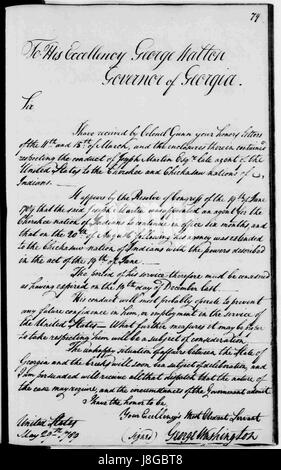 79
To His Excellency George Walton
Governor of Georgia.
Sir
I have received by Colonel Gunn your Honors Letters
of the 11th and 15th of March, and the enclosures therein contained
respecting the conduct of Joseph Martin Esqr. late agent of the
United States to the Cherokee and Chickasaw nations of
Indians.
It appears by the Resolve of Congress of the 19th of June
1788 that the said Joseph Martin was appointed an agent for the
Cherokee nation of Indians to continue in office six months, and
that on the 20th of August following his agency was extended
to the Chickasaw nation of Indians with the powers described
in the act of the 19th of June.
The period of his service therefore must be considered
as having expired on the 19th day of December last.
His conduct will most probably operate to prevent
any future confidence in him, or employment in the service of
the United States — What further measures it may be proper
to take respecting him will be a subject of consideration.
The unhappy situation of affairs between the State of
Georgia and the Creeks will soon be a subject of deliberation, and
I am persuaded will receive all that dispatch that the nature of
the case may require, and the circumstances of the Government admit
I have the honor to be
Your Excellency's Most Obedient Servant
United States
May 29th 1789 (Signed) George Washington
alamy
8GBT8